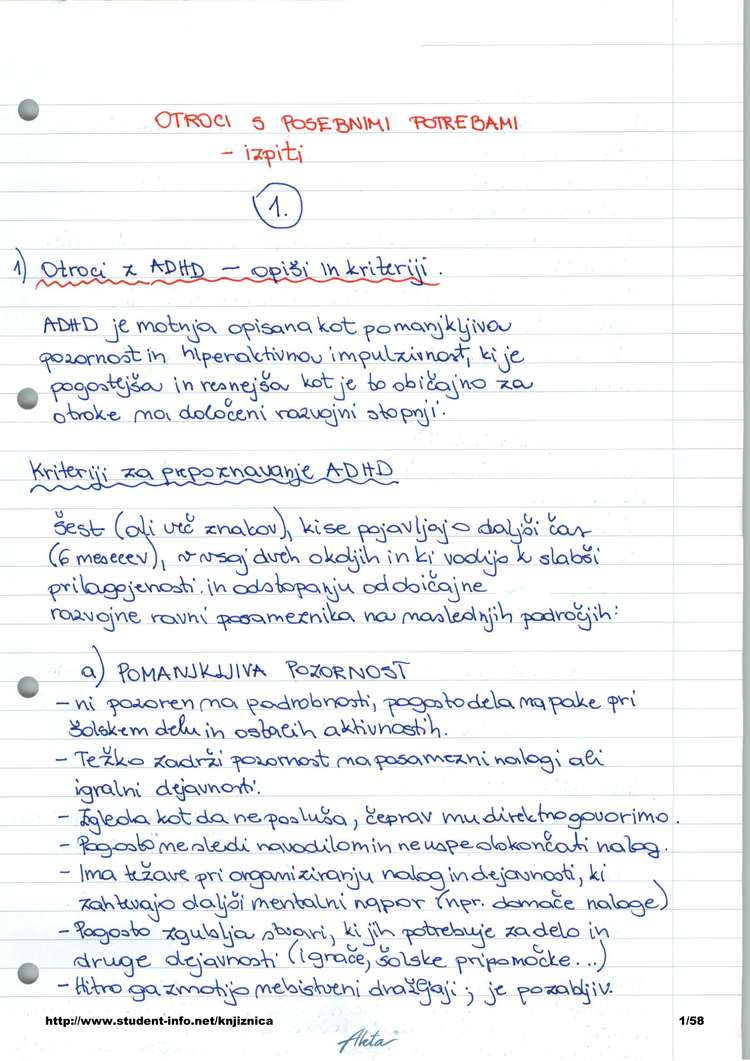 OTROCI S POSEBNIMI POTREBAMI
- izpiti
1.
1) Otroci z ADHD - opiši in kriteriji.
ADHD je motnja opisana kot pomanjkljiva
pozornost in hiperaktivna impulzivnost, ki je
pogostejša in resnejša kot je to običajno za
otroke na določeni razvojni stopnji.
Kriteriji za prepoznavanje ADHD
Šest (ali več znakov), ki se pojavljajo daljši čas
(6 mesecev), v vsaj dveh okoljih in ki vodijo k slabši
prilagojenosti in odstopanju od običajne
razvojne ravni posameznika na naslednjih področjih:
a) POMANJKLJIVA POZORNOST
- ni pozoren na podrobnosti, pogosto dela napake pri
šolskem delu in ostalih aktivnostih.
- Težko zadrži pozornost na posamezni nalogi ali
igralni dejavnosti.
- Izgleda kot da ne posluša, čeprav mu direktno govorimo.
- Pogosto ne sledi navodilom in ne uspe dokončati nalog.
- Ima težave pri organiziranju nalog in dejavnosti, ki
zahtevajo daljši mentalni napor (npr. domače naloge)
- Pogosto zgublja stvari, ki jih potrebuje za delo in
druge dejavnosti (igrače, šolske pripomočke...)
- Hitro ga zmotijo nebistveni dražljaji; je pozabljiv.
http://www.student-info.net/knjiznica
1/58
Aleta